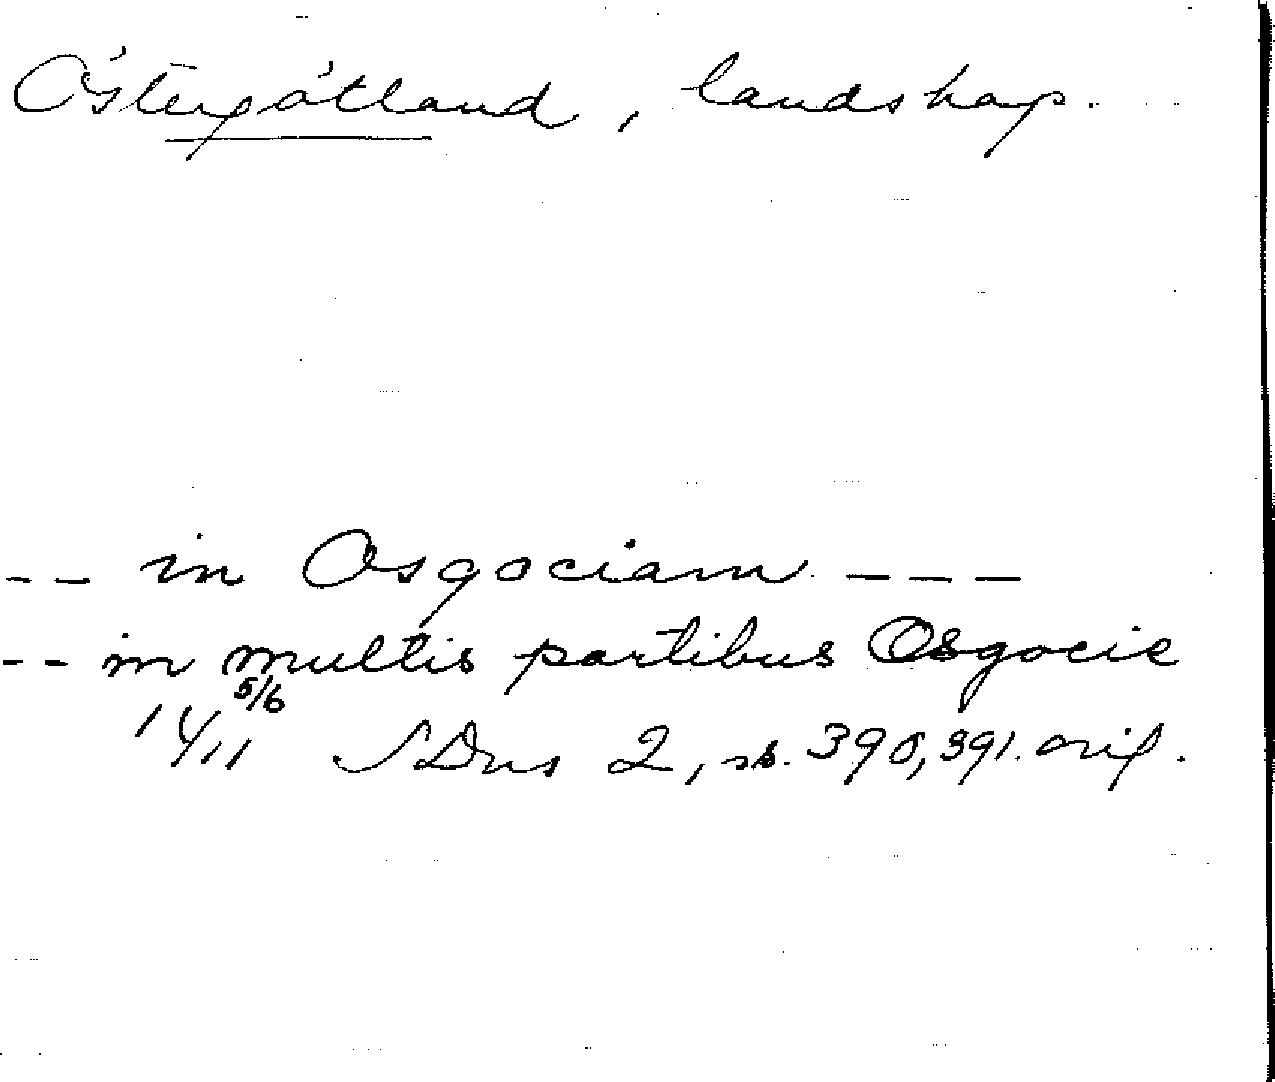 Östergötland, landskap.
-- in Osgociam ---
-- in multis partibus Osgocie
1411 5/6 SDns 2, s. 390, 391. orig.